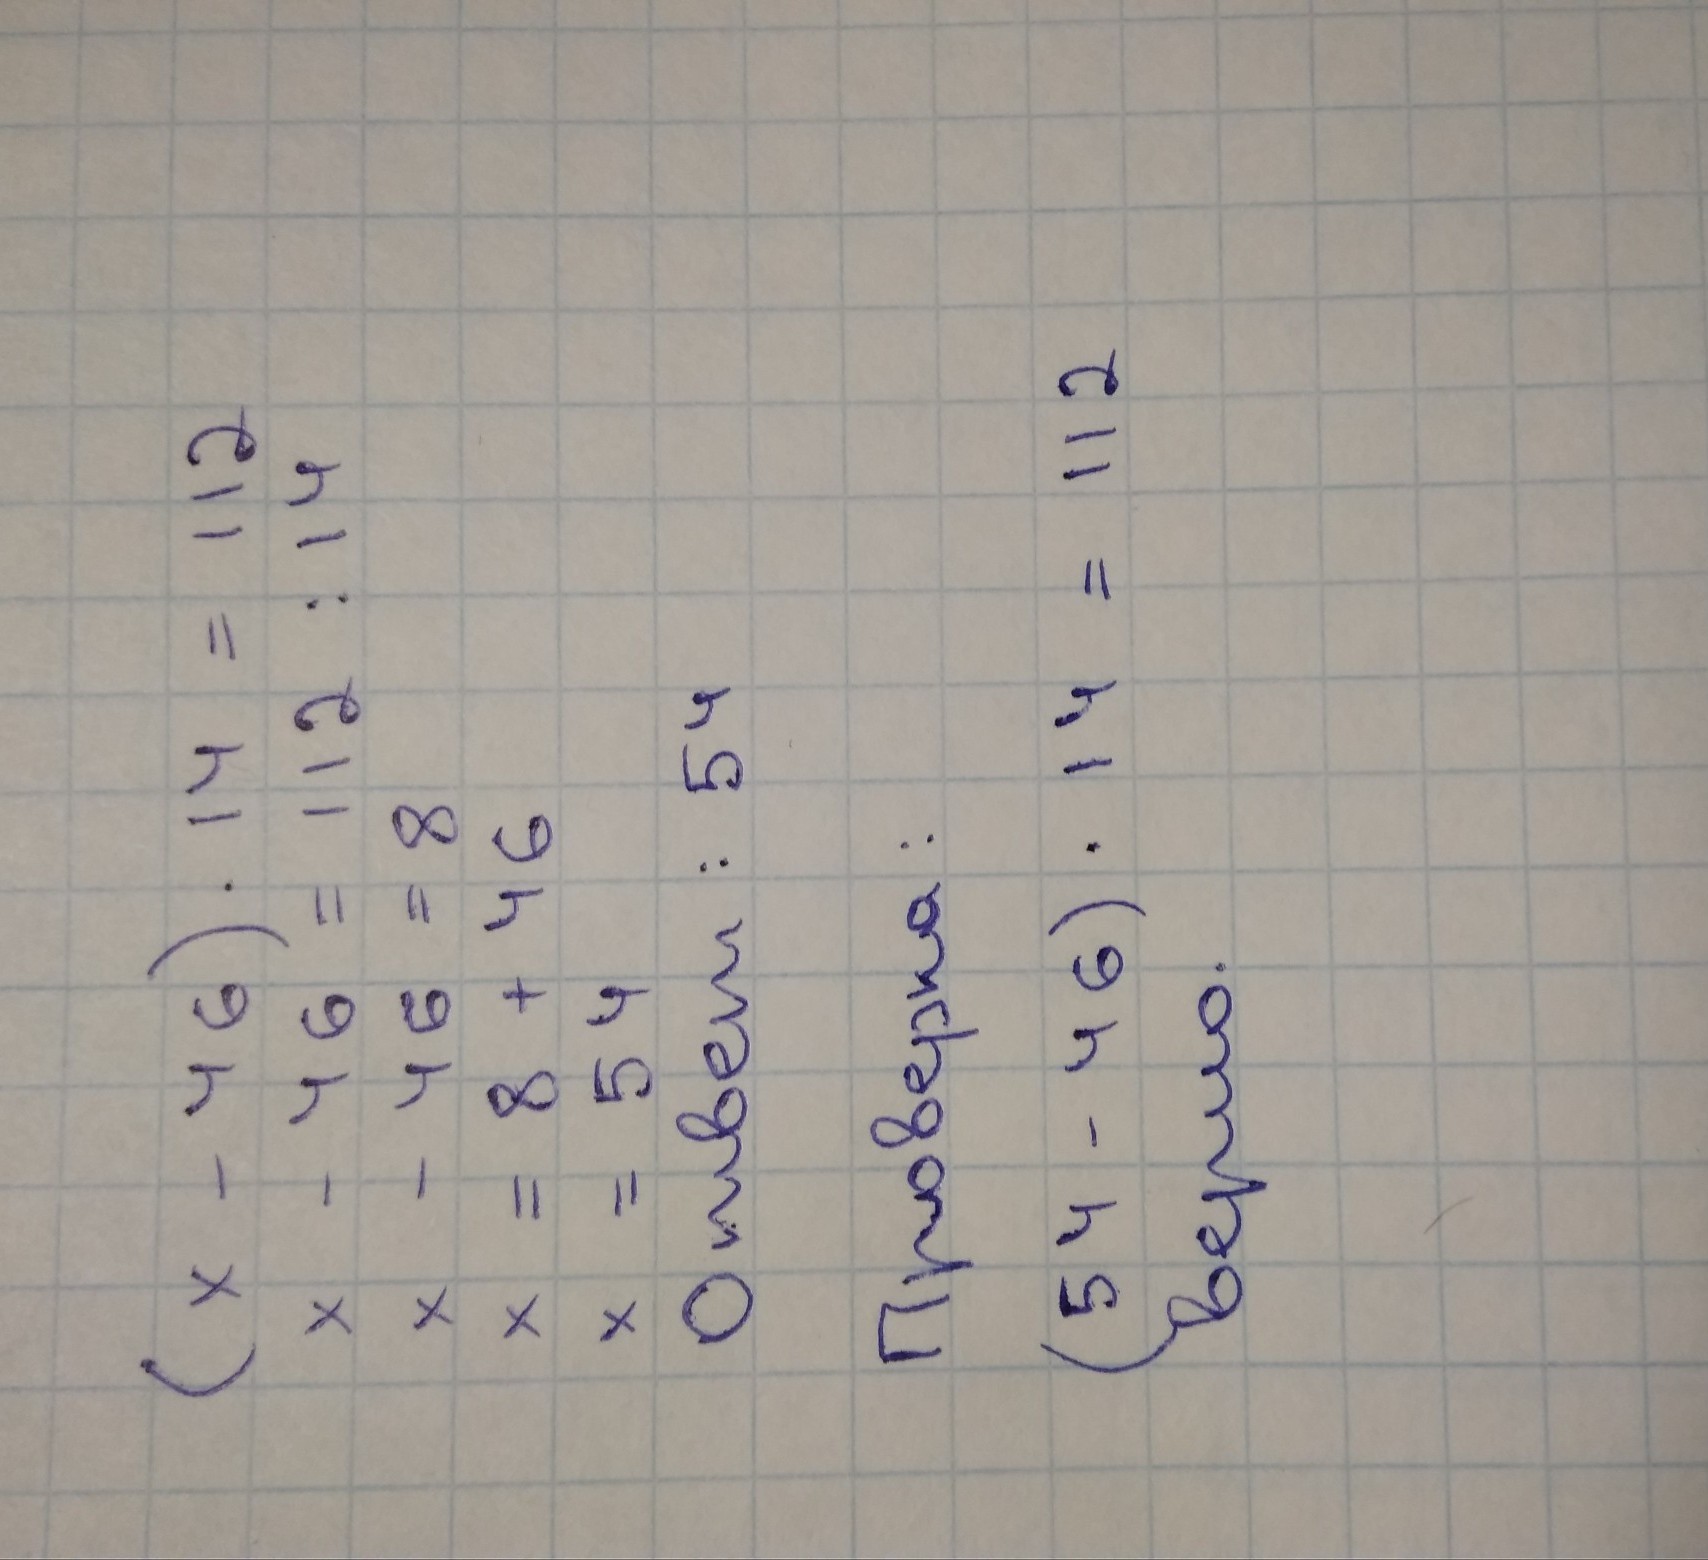 (x - 46) · 14 = 112
x - 46 = 112 : 14
x - 46 = 8
x = 8 + 46
x = 54
Ответ : 54
Проверка :
(54 - 46) · 14 = 112
верно.